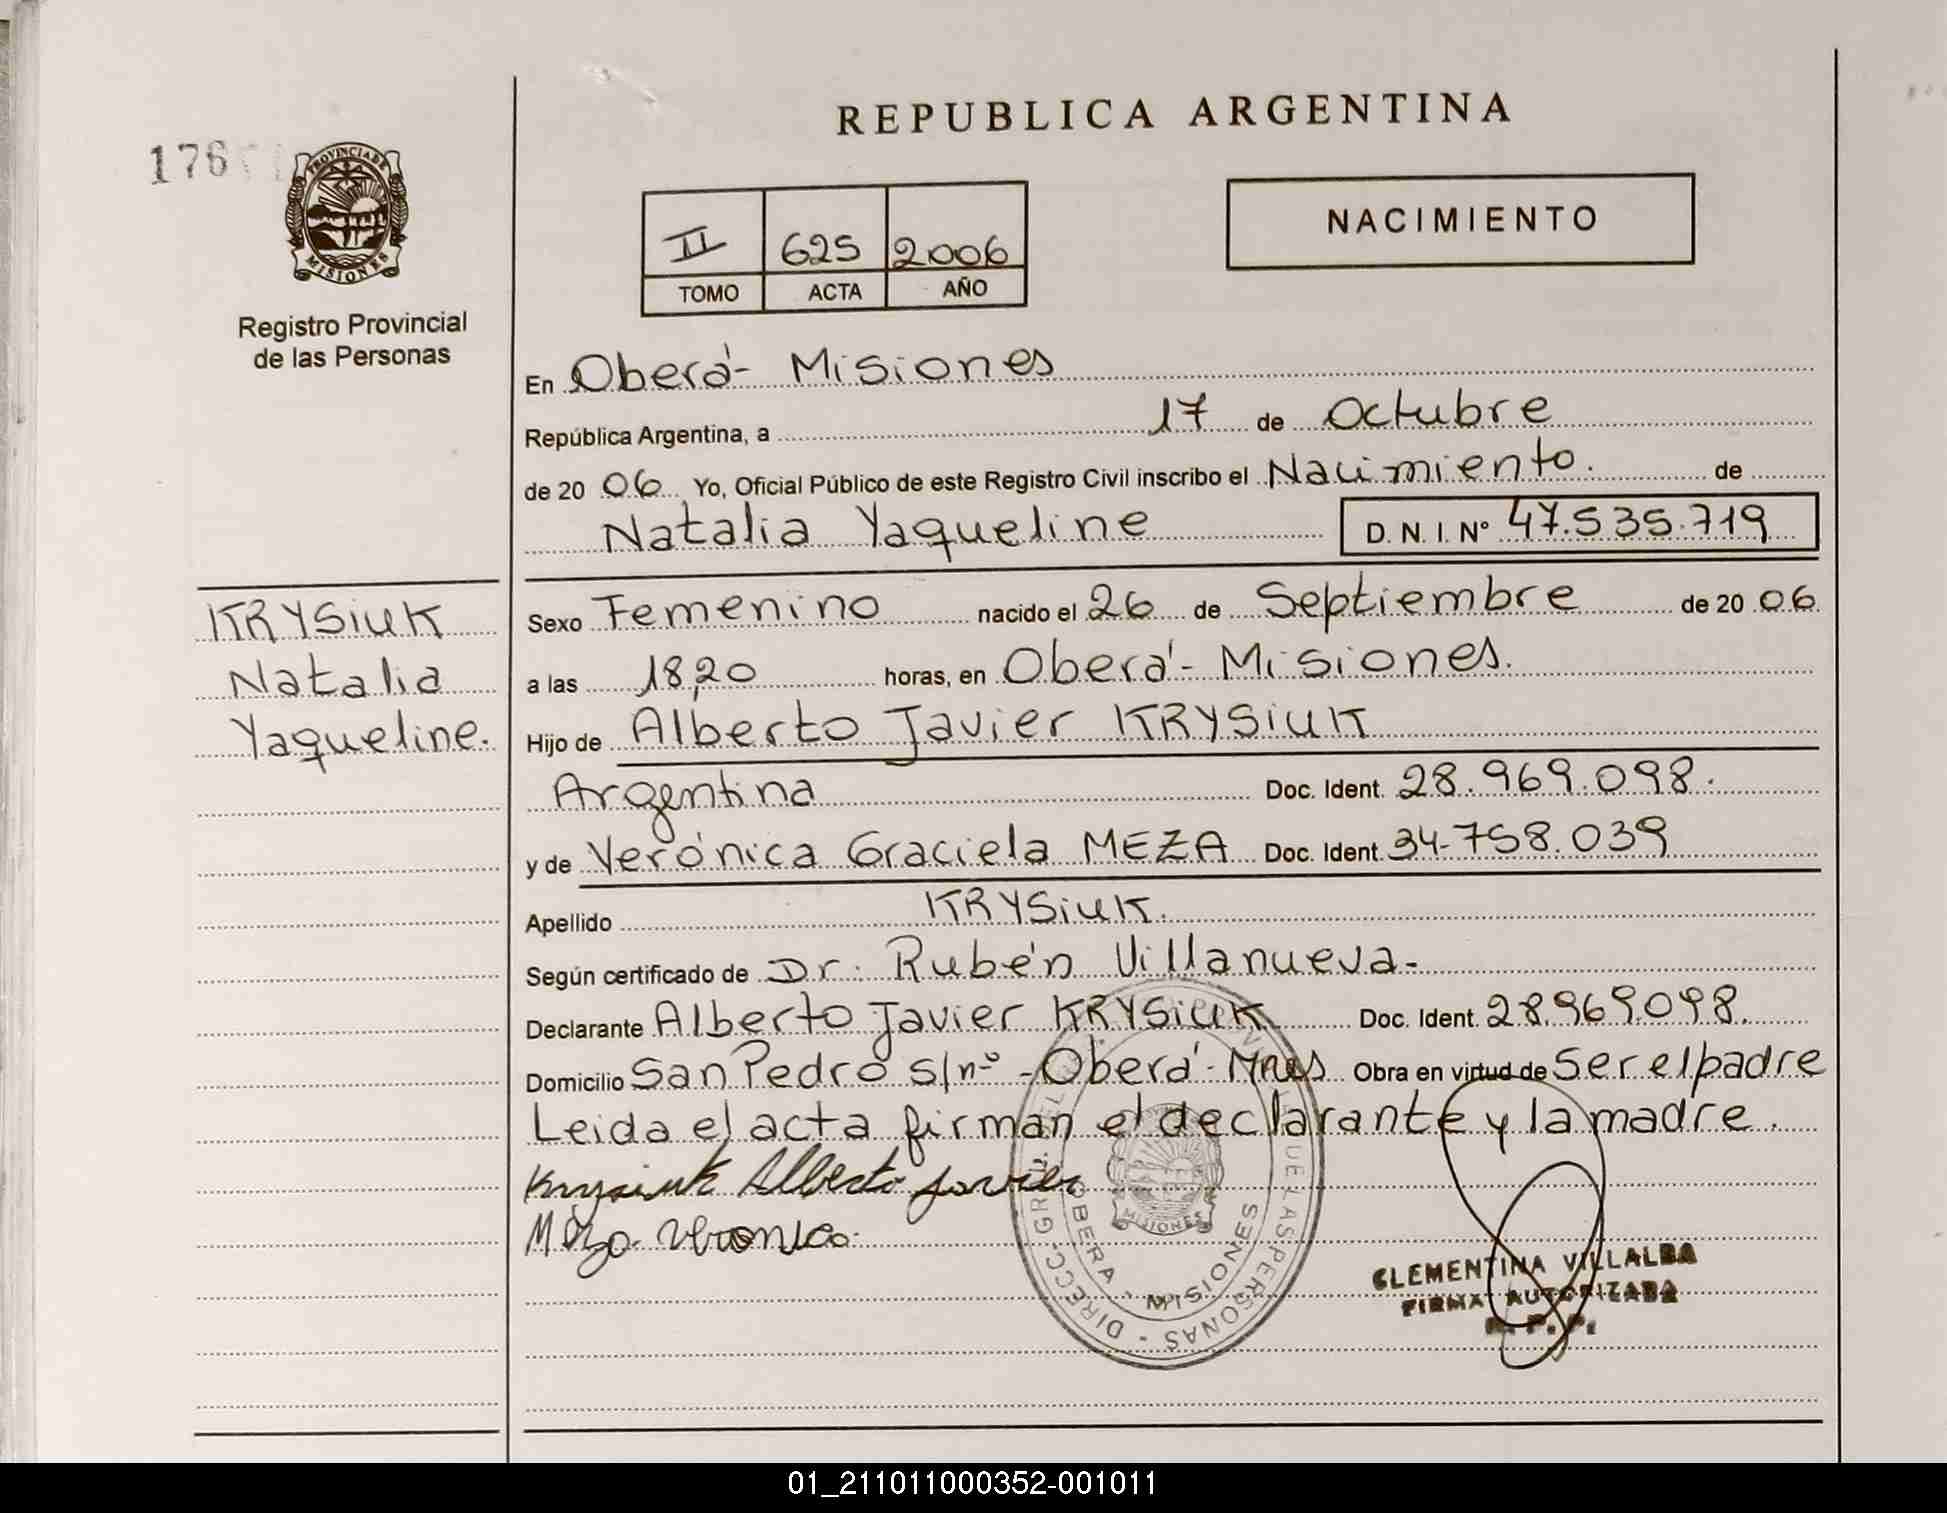 REPUBLICA ARGENTINA
176
PROVINCIA DE
MISIONES
Registro Provincial
de las Personas
II 625 2006
TOMO ACTA AÑO
NACIMIENTO
En Oberá - Misiones
República Argentina, a 17 de Octubre
de 20 06 Yo, Oficial Público de este Registro Civil inscribo el Nacimiento. de
Natalia Yaqueline D. N. I. N° 47.535.719
KRYSiUK
Natalia
Yaqueline.
Sexo Femenino nacido el 26 de Septiembre de 20 06
a las 18,20 horas, en Oberá - Misiones.
Hijo de Alberto Javier KRYSiUK
Argentina Doc. Ident. 28.969.098.
y de Verónica Graciela MEZA Doc. Ident. 34-758.039
Apellido KRYSiUK.
Según certificado de Dr. Rubén Villanueva-
Declarante Alberto Javier KRYSiUK Doc. Ident. 28.969.098.
Domicilio San Pedro s/nº - Oberá - Mnes Obra en virtud de Ser el padre
Leida el acta firman el declarante y la madre.
Krysiuk Alberto Javier
Meza Veronica
OBERA - MISIONES
MISIONES
CLEMENTINA VILLALBA
FIRMA AUTORIZADA
R. P. P.
01_211011000352-001011